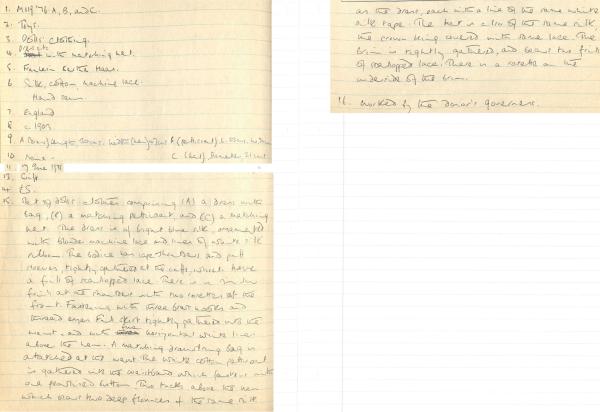 1. M119'76. A, B, and C.
2. Toys.
3. Dolls' clothing.
4. Dress etc with matching hat.
5. for the Haus.
6. Silk, cotton, machine lace.
Hand sewn.
7. England
8. c 1909
9. A (dress) length B (petticoat)
10. None - C. (hat) Diameter, 21 cms
11. 17 June 1976
13. Gift
14. £5.
15. Set of dolls' clothes comprising (A) a dress with
bag, (B) a matching petticoat, and (C) a matching
hat. The dress is of bright blue silk, ornamented
with blonde machine lace and lines of white silk
ribbon. The bodice has cape shoulders and puff
sleeves, tightly gathered at the cuffs, which have
a frill of scalloped lace. There is a
frill at the shoulders with two rosettes at the
front. Fastening with three brass hooks and
thread eyes. Full skirt tightly gathered into the
waist, and with five horizontal white lines
above the hem. A matching drawstring bag is
attached at the waist. The white cotton petticoat
is gathered into the waistband which fastens with
one pearlised button. Two tucks above the hem
which bears two deep flounces of the same silk
as the dress, each with a line of the same white
silk tape. The hat is also of the same silk,
the crown being covered with same lace. The
brim is tightly gathered, and bears two frills
of scalloped lace. There is a rosette on the
underside of the brim.
16. Worked by the donor's governess.